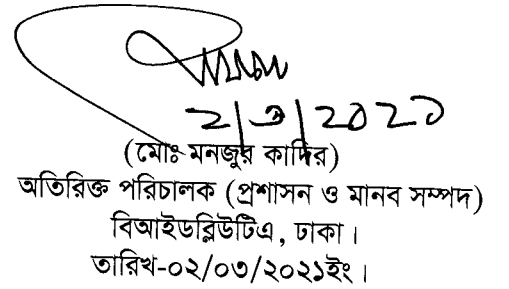 ২/৩/২০২১
(মোঃ মনজুর কাদির)
অতিরিক্ত পরিচালক (প্রশাসন ও মানব সম্পদ)
বিআইডব্লিউটিএ, ঢাকা।
তারিখ-০২/০৩/২০২১ইং।